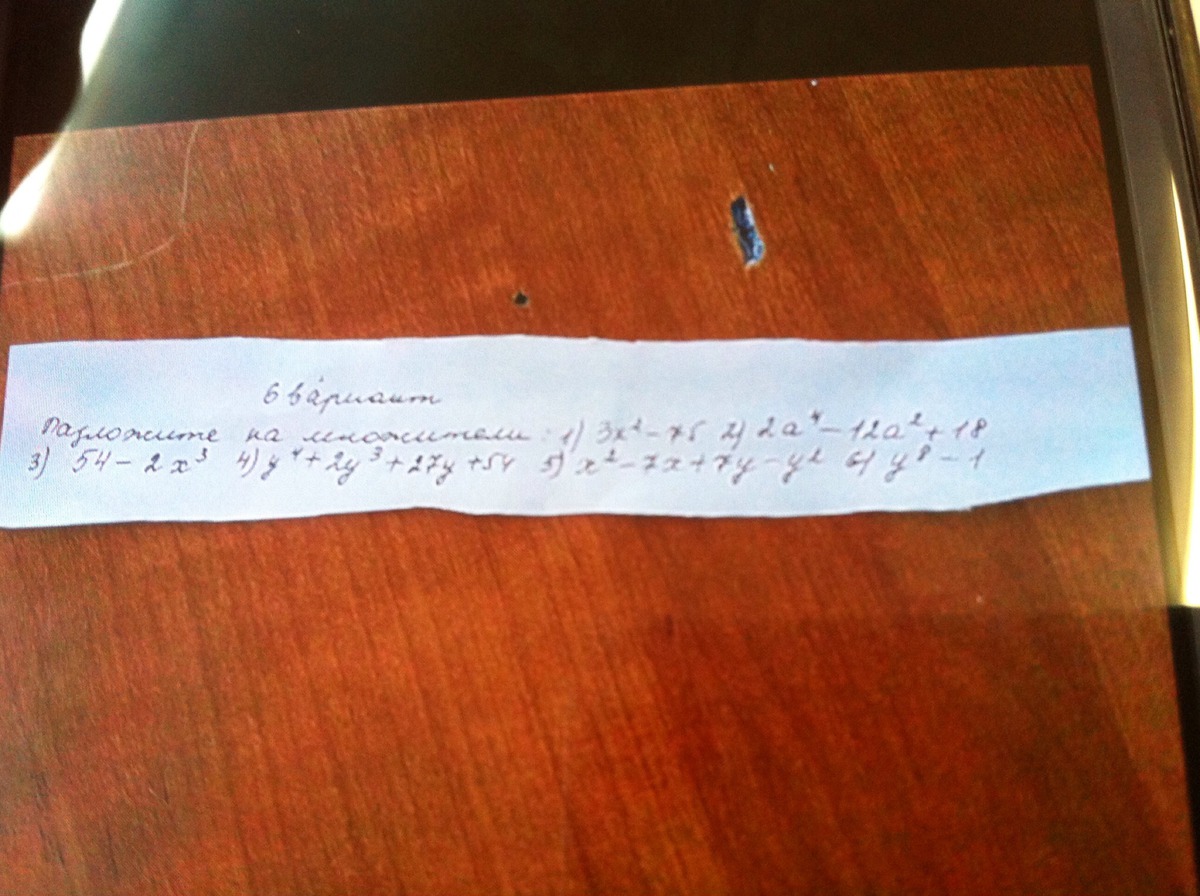 6 вариант
Разложите на множители: 1) 3x² - 75 2) 2a⁴ - 12a² + 18
3) 54 - 2x³ 4) y⁴ + 2y³ + 27y + 54 5) x² - 7x + 7y - y² 6) y⁸ - 1